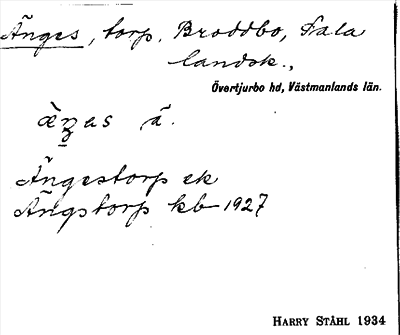 Änges, torp, Broddbo, Sala
landsk.,
Övertjurbo hd, Västmanlands län.
ä̀ŋas ā.
Ängestorp ek
Ängstorp kb 1927
HARRY STÅHL 1934